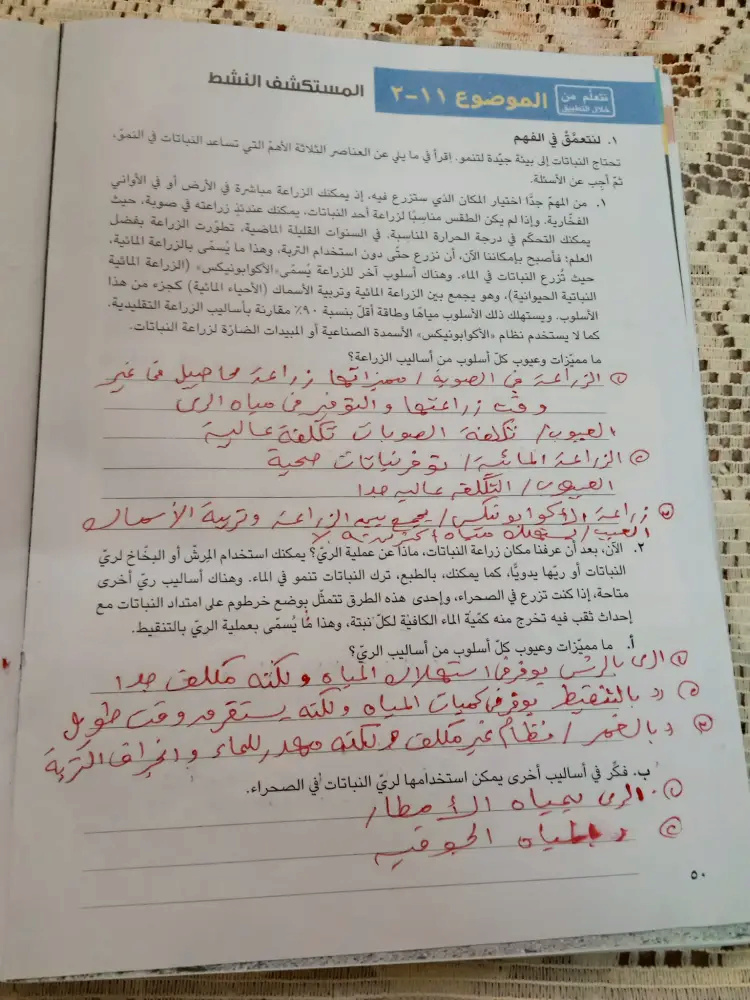 نتعلّم من
خلال التطبيق
الموضوع ١١-٢
المستكشف النشط
١. لنتعمَّقْ في الفهم
تحتاج النباتات إلى بيئة جيّدة لتنمو. اِقرأ في ما يلي عن العناصر الثلاثة الأهمّ التي تساعد النباتات في النموّ،
ثمّ أجِب عن الأسئلة.
١. من المهمّ جدًّا اختيار المكان الذي ستزرع فيه. إذ يمكنك الزراعة مباشرة في الأرض أو في الأواني
الفخّارية. وإذا لم يكن الطقس مناسبًا لزراعة أحد النباتات، يمكنك عندئذٍ زراعته في صوبة، حيث
يمكنك التحكّم في درجة الحرارة المناسبة. في السنوات القليلة الماضية، تطوّرت الزراعة بفضل
العلم: فأصبح بإمكاننا الآن، أن نزرع حتّى دون استخدام التربة، وهذا ما يُسمّى بالزراعة المائية،
حيث تُزرع النباتات في الماء. وهناك أسلوب آخر للزراعة يُسمّى «الأكوابونيكس» (الزراعة المائية
النباتية الحيوانية)، وهو يجمع بين الزراعة المائية وتربية الأسماك (الأحياء المائية) كجزء من هذا
الأسلوب. ويستهلك ذلك الأسلوب مياهًا وطاقة أقلّ بنسبة ٩٠٪ مقارنة بأساليب الزراعة التقليدية.
كما لا يستخدم نظام «الأكوابونيكس» الأسمدة الصناعية أو المبيدات الضارّة لزراعة النباتات.
ما مميّزات وعيوب كلّ أسلوب من أساليب الزراعة؟
① الزراعة فى الصوبة / مميزاتها زراعة محاصيل فى غير
وقت زراعتها والتوفير فى مياه الرى
العيوب / تكلفة الصوبات تكلفة عالية
② الزراعة المائية / توفر نباتات صحية
العيوب / التكلفه عاليه جدا
③ زراعة الأكوابونيكس / يجمع بين الزراعة وتربية الأسماك
العيب / يستهلك مياه
٢. الآن، بعد أن عرفنا مكان زراعة النباتات، ماذا عن عملية الريّ؟ يمكنك استخدام المِرشّ أو البخّاخ لريّ
النباتات أو ريّها يدويًّا، كما يمكنك، بالطبع، ترك النباتات تنمو في الماء. وهناك أساليب ريّ أخرى
متاحة، إذا كنت تزرع في الصحراء، وإحدى هذه الطرق تتمثّل بوضع خرطوم على امتداد النباتات مع
إحداث ثقب فيه تخرج منه كمّية الماء الكافية لكلّ نبتة، وهذا ما يُسمّى بعملية الريّ بالتنقيط.
أ. ما مميّزات وعيوب كلّ أسلوب من أساليب الريّ؟
① الرى بالرش يوفر فى استهلاك المياه ولكنه مكلف جدا
② بالتنقيط يوفر فى كميات المياه ولكنه يستغرق وقت طويل
③ بالغمر / نظام غير مكلف ولكنه مهدر للماء وانجراف التربة
ب. فكّر في أساليب أخرى يمكن استخدامها لريّ النباتات في الصحراء.
① الرى بمياه الأمطار
② بالمياه الجوفيه
٥٠